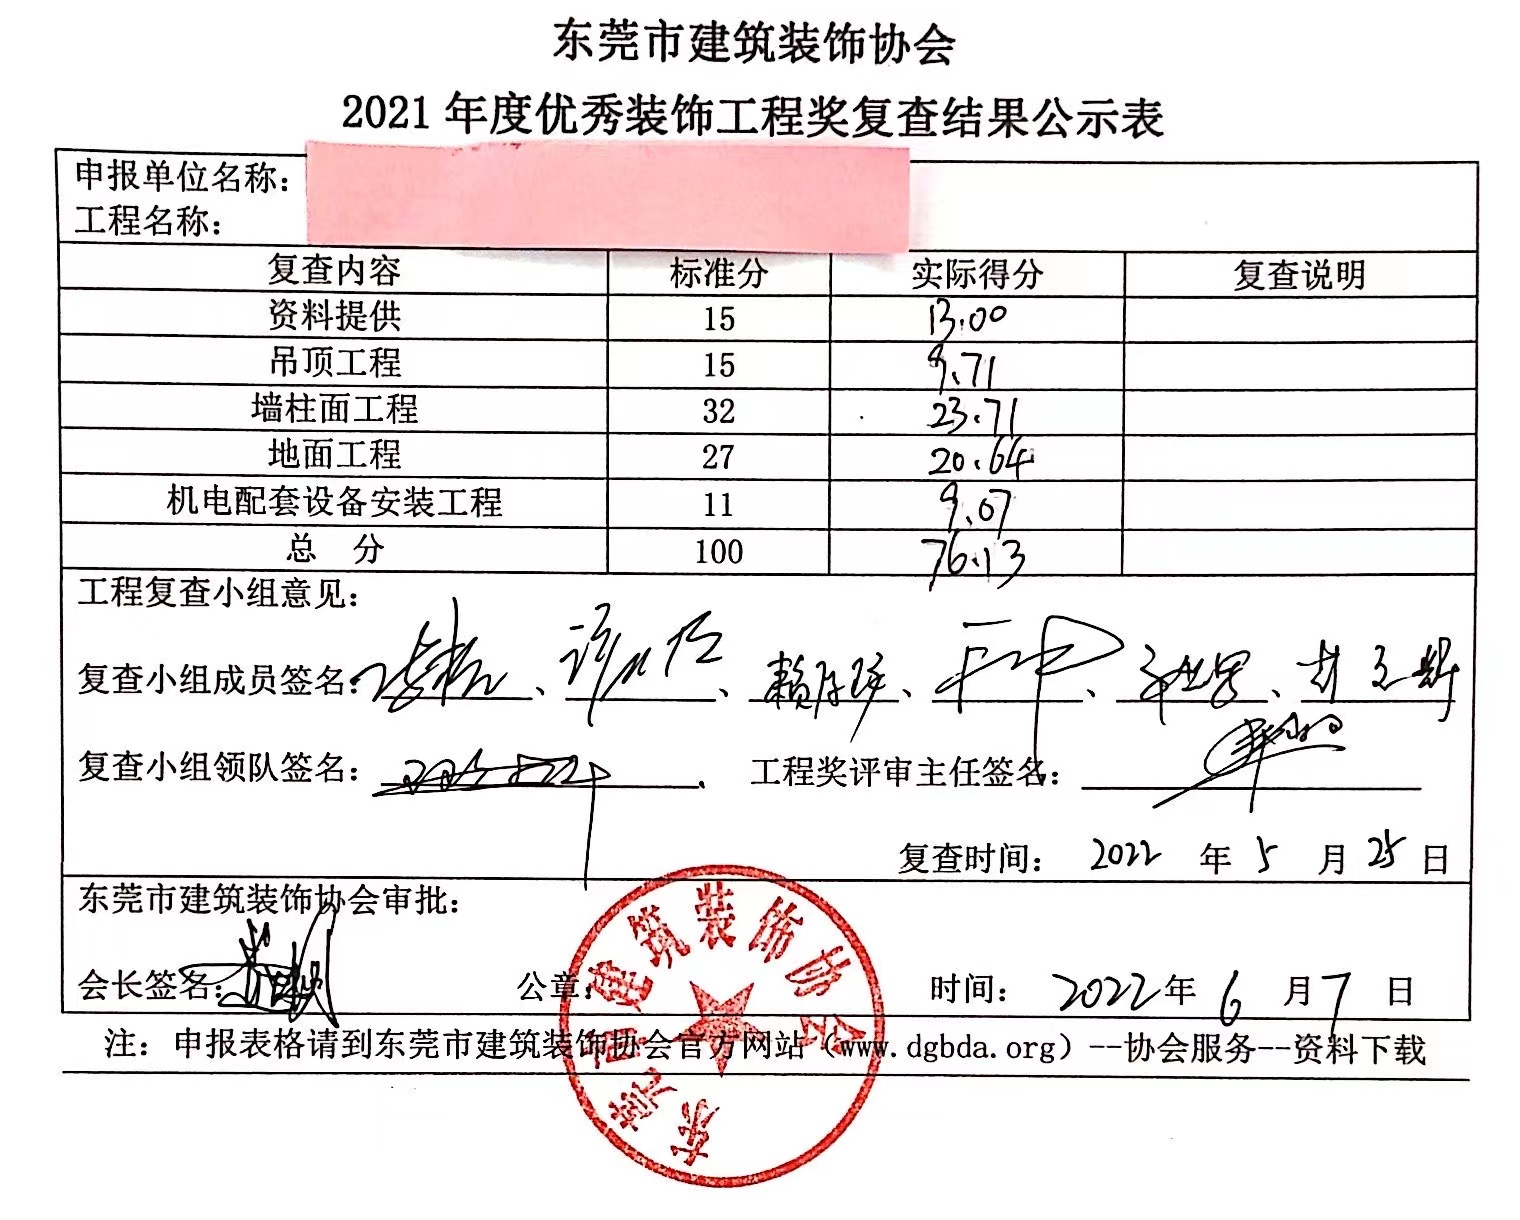 东莞市建筑装饰协会
2021年度优秀装饰工程奖复查结果公示表
申报单位名称：
工程名称：
复查内容 标准分 实际得分 复查说明
资料提供 15 13.00
吊顶工程 15 9.71
墙柱面工程 32 23.71
地面工程 27 20.64
机电配套设备安装工程 11 9.07
总 分 100 76.13
工程复查小组意见：
复查小组成员签名：、、、、、
复查小组领队签名： 工程奖评审主任签名：
复查时间： 2022 年 5 月 25 日
东莞市建筑装饰协会审批：
会长签名： 公章： 时间： 2022 年 6 月 7 日
东莞市建筑装饰协会
注：申报表格请到东莞市建筑装饰协会官方网站（www.dgbda.org）--协会服务--资料下载